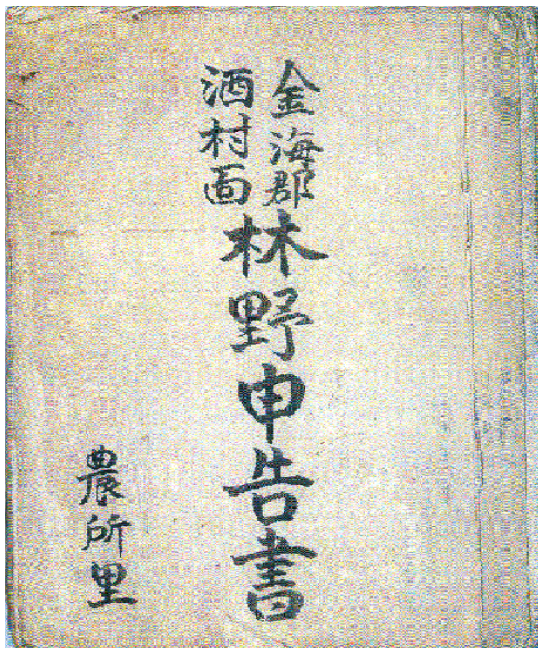 金海郡
酒村面
林野申告書
農所里